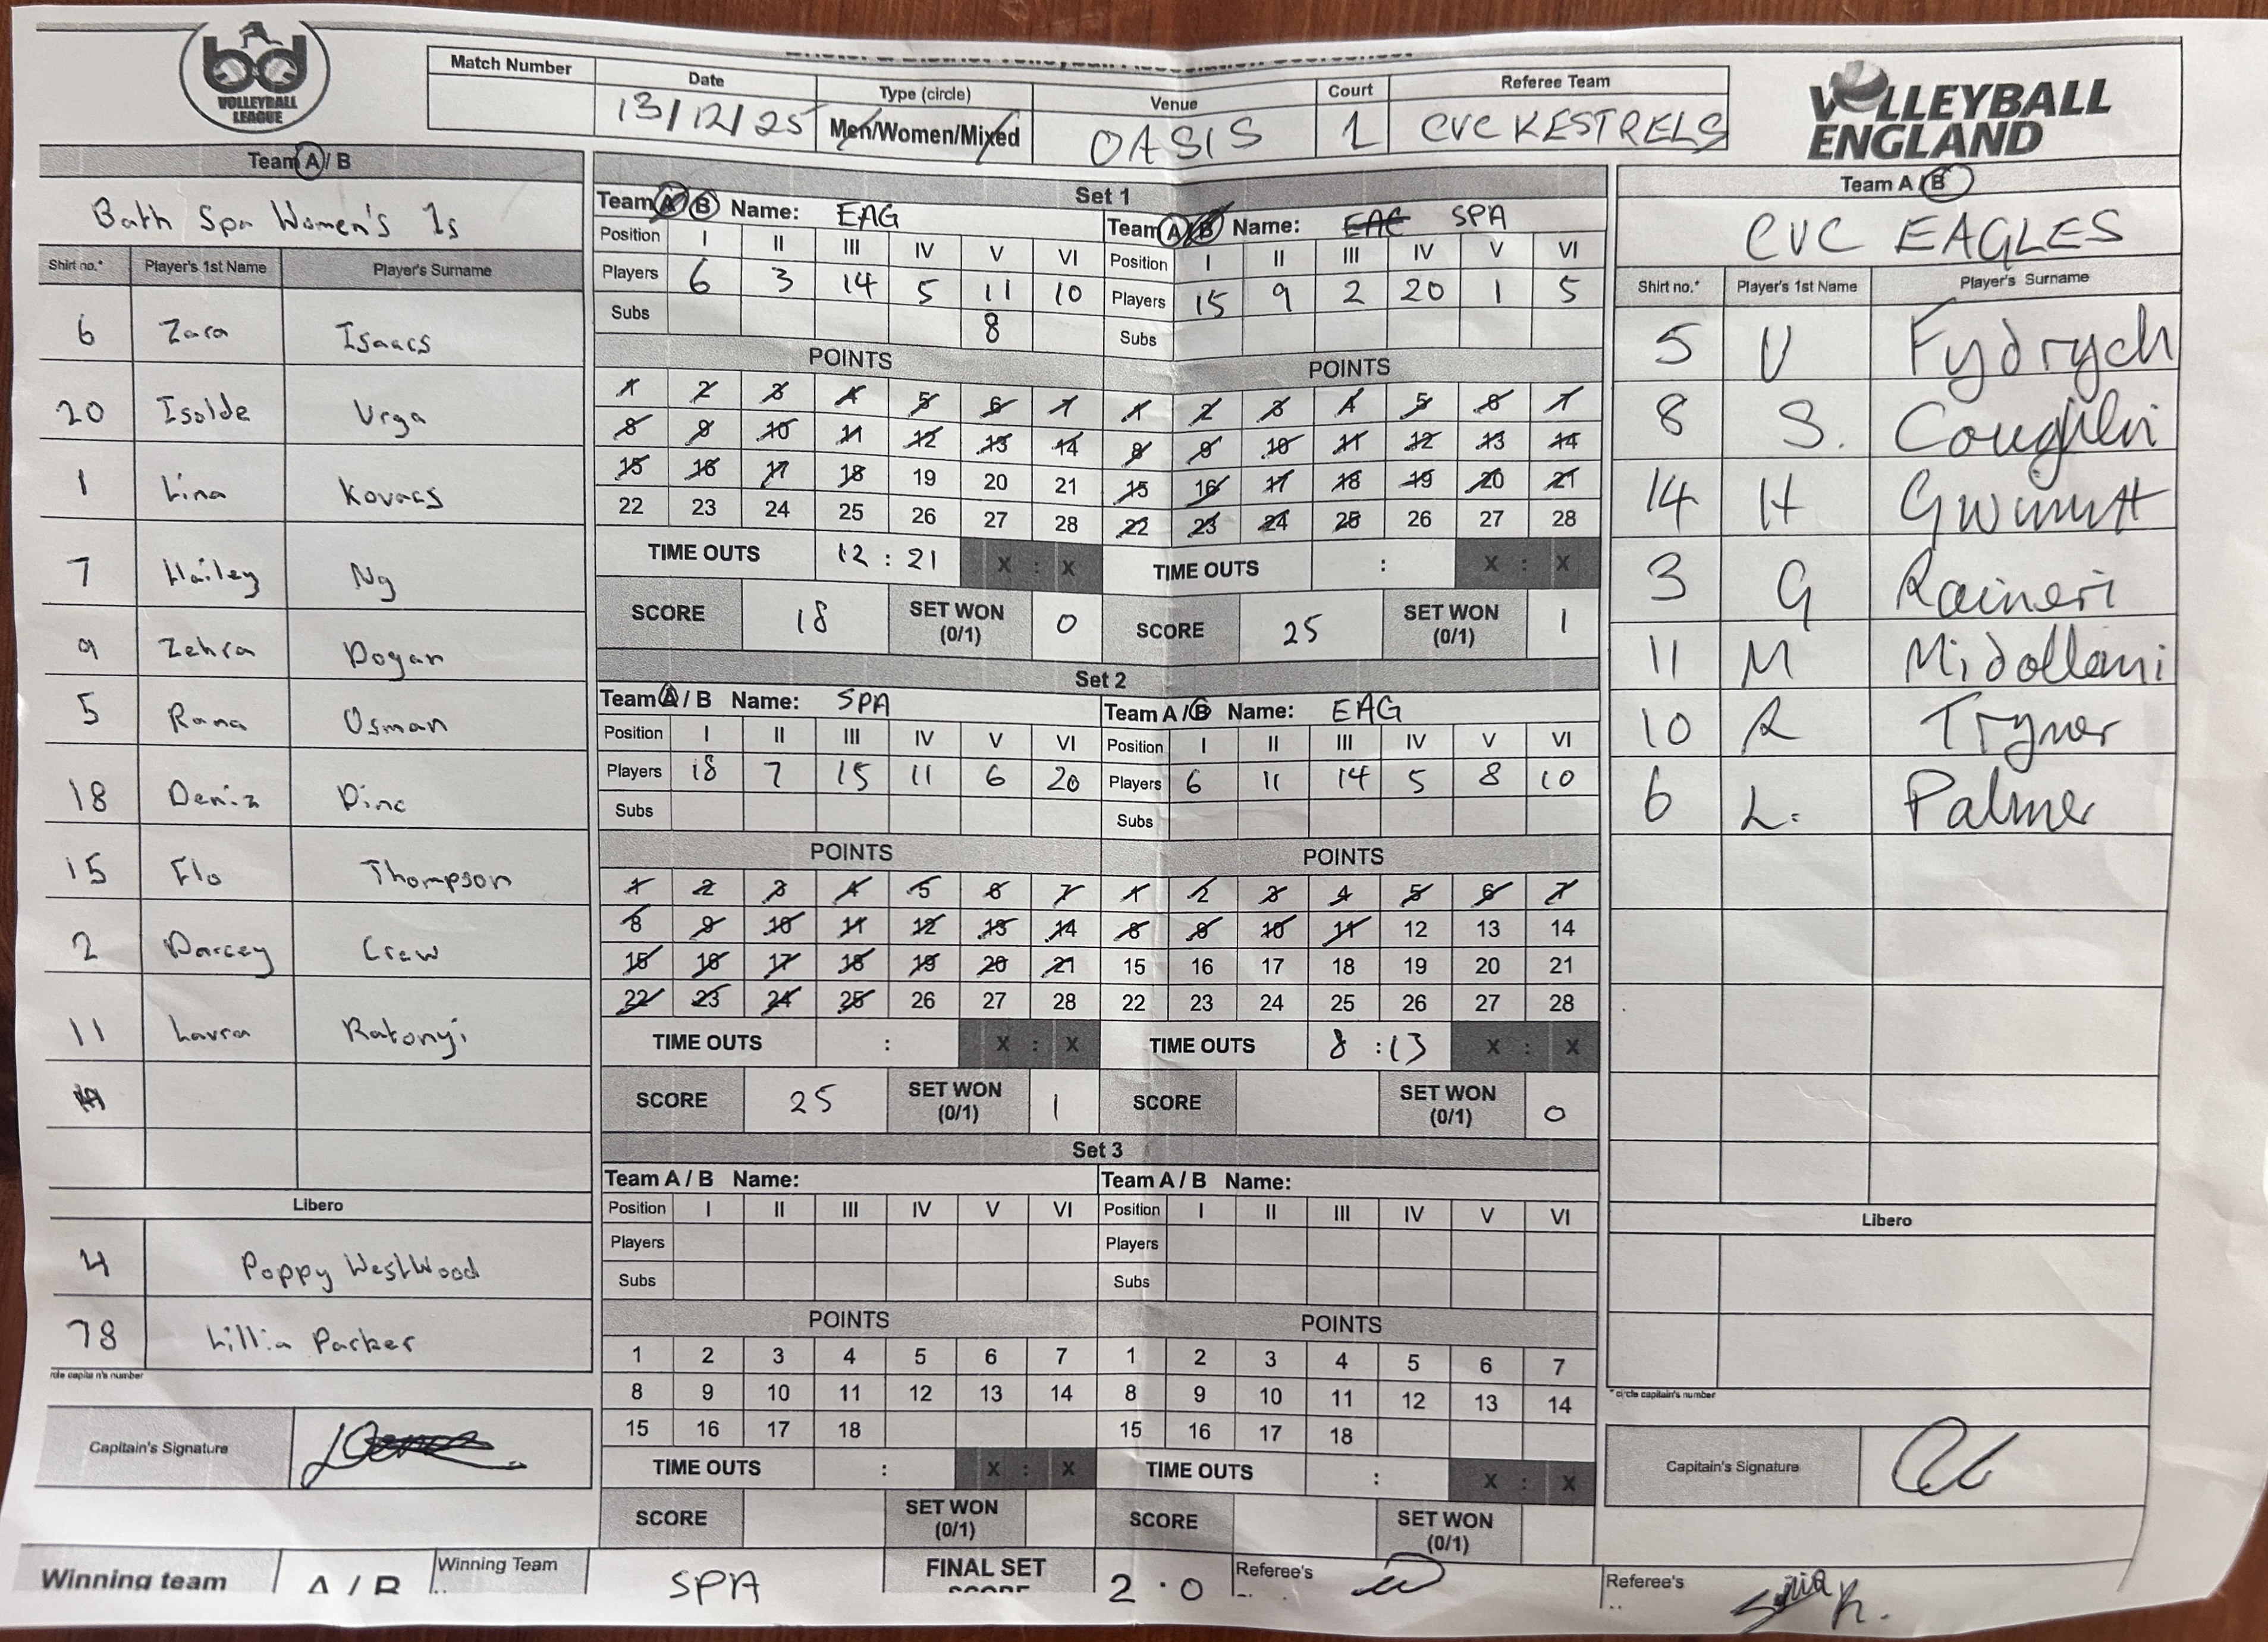 bd
VOLLEYBALL
LEAGUE
Match Number
Date
13/12/25
Type (circle)
Men/Women/Mixed
Venue
OASIS
Court
1
Referee Team
CVC KESTRELS
VOLLEYBALL
ENGLAND
Team A / B
Bath Spa Women's 1s
Shirt no.* Player's 1st Name Player's Surname
6 Zara Isaacs
20 Isolde Urga
1 Lina Kovacs
7 Hailey Ng
9 Zehra Dogan
5 Rana Osman
18 Deniz Dinc
15 Flo Thompson
2 Darcey Crew
11 Laura Ratonyi
Libero
4 Poppy Westwood
78 Lillia Parker
Capitain's Signature
Set 1
Team A / B Name: EAG
Position I II III IV V VI
Players 6 3 14 5 11 10
Subs 8
POINTS
1 2 3 4 5 6 7
8 9 10 11 12 13 14
15 16 17 18 19 20 21
22 23 24 25 26 27 28
TIME OUTS 12 : 21 X : X
SCORE 18 SET WON (0/1) 0
Team A / B Name: EAG SPA
Position I II III IV V VI
Players 15 9 2 20 1 5
Subs
POINTS
1 2 3 4 5 6 7
8 9 10 11 12 13 14
15 16 17 18 19 20 21
22 23 24 25 26 27 28
TIME OUTS : X : X
SCORE 25 SET WON (0/1) 1
Set 2
Team A / B Name: SPA
Position I II III IV V VI
Players 18 7 15 11 6 20
Subs
POINTS
1 2 3 4 5 6 7
8 9 10 11 12 13 14
15 16 17 18 19 20 21
22 23 24 25 26 27 28
TIME OUTS : X : X
SCORE 25 SET WON (0/1) 1
Team A / B Name: EAG
Position I II III IV V VI
Players 6 11 14 5 8 10
Subs
POINTS
1 2 3 4 5 6 7
8 9 10 11 12 13 14
15 16 17 18 19 20 21
22 23 24 25 26 27 28
TIME OUTS 8 : 13 X : X
SCORE SET WON (0/1) 0
Set 3
Team A / B Name:
Position I II III IV V VI
Players
Subs
POINTS
1 2 3 4 5 6 7
8 9 10 11 12 13 14
15 16 17 18
TIME OUTS : X : X
SCORE SET WON (0/1)
Team A / B Name:
Position I II III IV V VI
Players
Subs
POINTS
1 2 3 4 5 6 7
8 9 10 11 12 13 14
15 16 17 18
TIME OUTS : X : X
SCORE SET WON (0/1)
Team A / B
CVC EAGLES
Shirt no.* Player's 1st Name Player's Surname
5 U Fydrych
8 S. Coughlin
14 H
3 G Raineri
11 M Midollami
10 R Tryner
6 L. Palmer
Libero
* circle capitain's number
Capitain's Signature
Winning team A / B
Winning Team SPA
FINAL SET SCORE 2 - 0
Referee's
Referee's